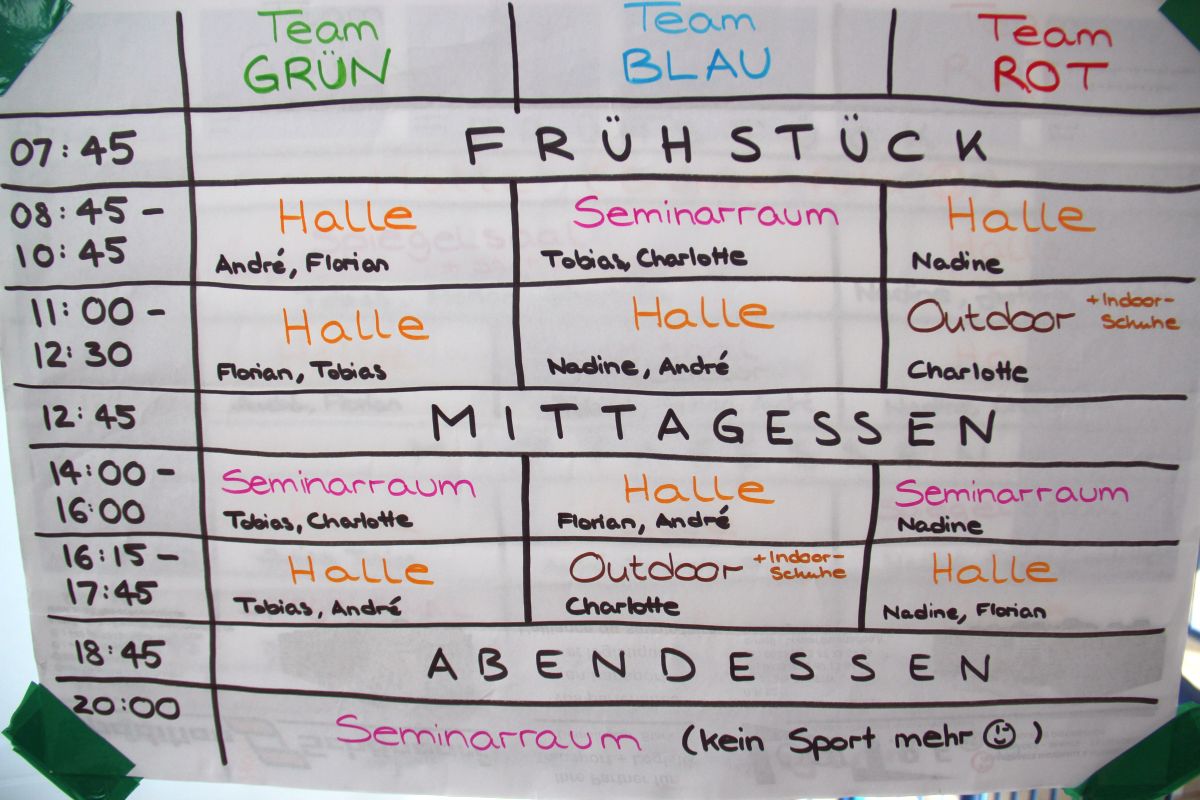 Team GRÜN Team BLAU Team ROT
07:45 FRÜHSTÜCK
08:45 – 10:45
Halle
André, Florian
Seminarraum
Tobias, Charlotte
Halle
Nadine
11:00 – 12:30
Halle
Florian, Tobias
Halle
Nadine, André
Outdoor + Indoor-Schuhe
Charlotte
12:45 MITTAGESSEN
14:00 – 16:00
Seminarraum
Tobias, Charlotte
Halle
Florian, André
Seminarraum
Nadine
16:15 – 17:45
Halle
Tobias, André
Outdoor + Indoor-Schuhe
Charlotte
Halle
Nadine, Florian
18:45 ABENDESSEN
20:00 Seminarraum (kein Sport mehr ☺)